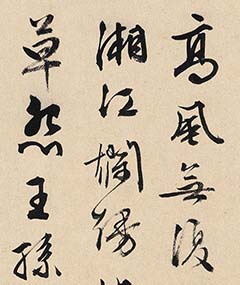 高風無復
湘江
草怨王孫